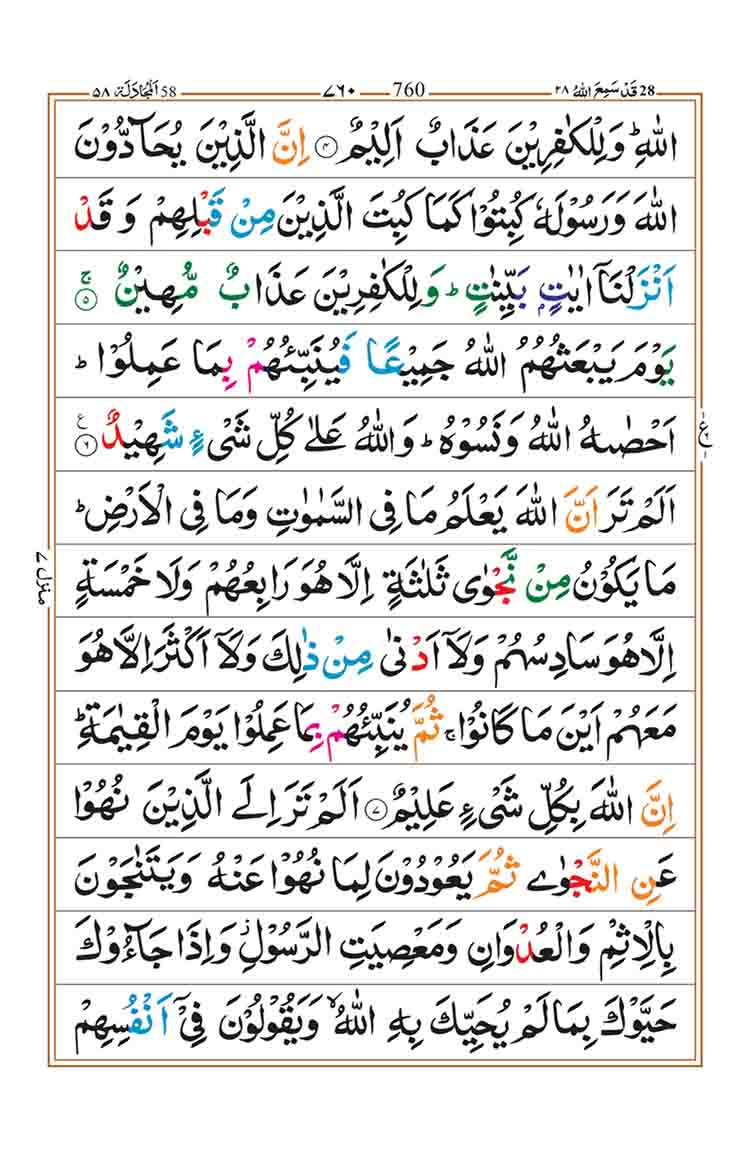 58 اَلْمُجَادَلَة ٥٨ ٧٦٠ 760 28 قَدْ سَمِعَ اللّٰهُ ٢٨
اللّٰهِ ؕ وَلِلْكٰفِرِيْنَ عَذَابٌ اَلِيْمٌ ۝۴ اِنَّ الَّذِيْنَ يُحَآدُّوْنَ
اللّٰهَ وَرَسُوْلَهٗ كُبِتُوْا كَمَا كُبِتَ الَّذِيْنَ مِنْ قَبْلِهِمْ وَقَدْ
اَنْزَلْنَاۤ اٰيٰتٍۭ بَيِّنٰتٍ ؕ وَلِلْكٰفِرِيْنَ عَذَابٌ مُّهِيْنٌ ۚ ۝۵
يَوْمَ يَبْعَثُهُمُ اللّٰهُ جَمِيْعًا فَيُنَبِّئُهُمْ بِمَا عَمِلُوْا ؕ
اَحْصٰىهُ اللّٰهُ وَنَسُوْهُ ؕ وَاللّٰهُ عَلٰى كُلِّ شَیْءٍ شَهِيْدٌ ۝۶ ع
اَلَمْ تَرَ اَنَّ اللّٰهَ يَعْلَمُ مَا فِی السَّمٰوٰتِ وَمَا فِی الْاَرْضِ ؕ
مَا يَكُوْنُ مِنْ نَّجْوٰی ثَلٰثَةٍ اِلَّا هُوَ رَابِعُهُمْ وَلَا خَمْسَةٍ
اِلَّا هُوَ سَادِسُهُمْ وَلَاۤ اَدْنٰی مِنْ ذٰلِكَ وَلَاۤ اَكْثَرَ اِلَّا هُوَ
مَعَهُمْ اَيْنَ مَا كَانُوْا ۚ ثُمَّ يُنَبِّئُهُمْ بِمَا عَمِلُوْا يَوْمَ الْقِيٰمَةِ ؕ
اِنَّ اللّٰهَ بِكُلِّ شَیْءٍ عَلِيْمٌ ۝۷ اَلَمْ تَرَ اِلَی الَّذِيْنَ نُهُوْا
عَنِ النَّجْوٰی ثُمَّ يَعُوْدُوْنَ لِمَا نُهُوْا عَنْهُ وَيَتَنٰجَوْنَ
بِالْاِثْمِ وَالْعُدْوَانِ وَمَعْصِيَتِ الرَّسُوْلِ ؗ وَاِذَا جَآءُوْكَ
حَيَّوْكَ بِمَا لَمْ يُحَيِّكَ بِهِ اللّٰهُ ۙ وَيَقُوْلُوْنَ فِیْۤ اَنْفُسِهِمْ
منزل ٧